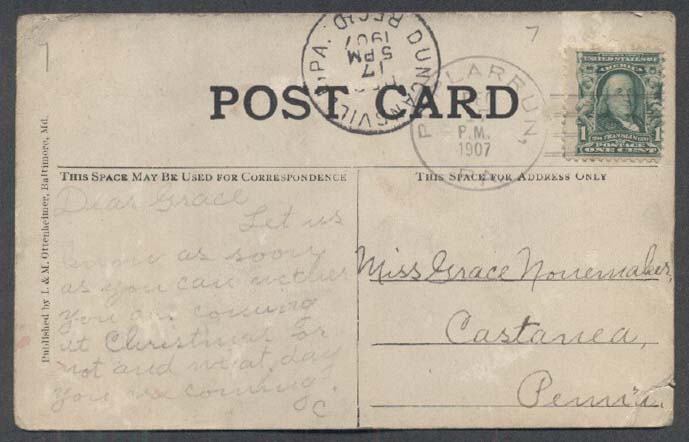 7
7
DUNCANSVILLE, PA.
17
5 PM
1907
REC'D
POST CARD
P.M.
1907
PA.
UNITED STATES OF
AMERICA
1 1
FRANKLIN
POSTAGE
ONE CENT
Published by I. & M. Ottenheimer, Baltimore, Md.
THIS SPACE MAY BE USED FOR CORRESPONDENCE
THIS SPACE FOR ADDRESS ONLY
Dear Grace
Let us
know as soon
as you can wether
you are coming
at Christmas or
not and what day
you are coming.
C
Miss Grace Nonemaker,
Castanea,
Penn'a.